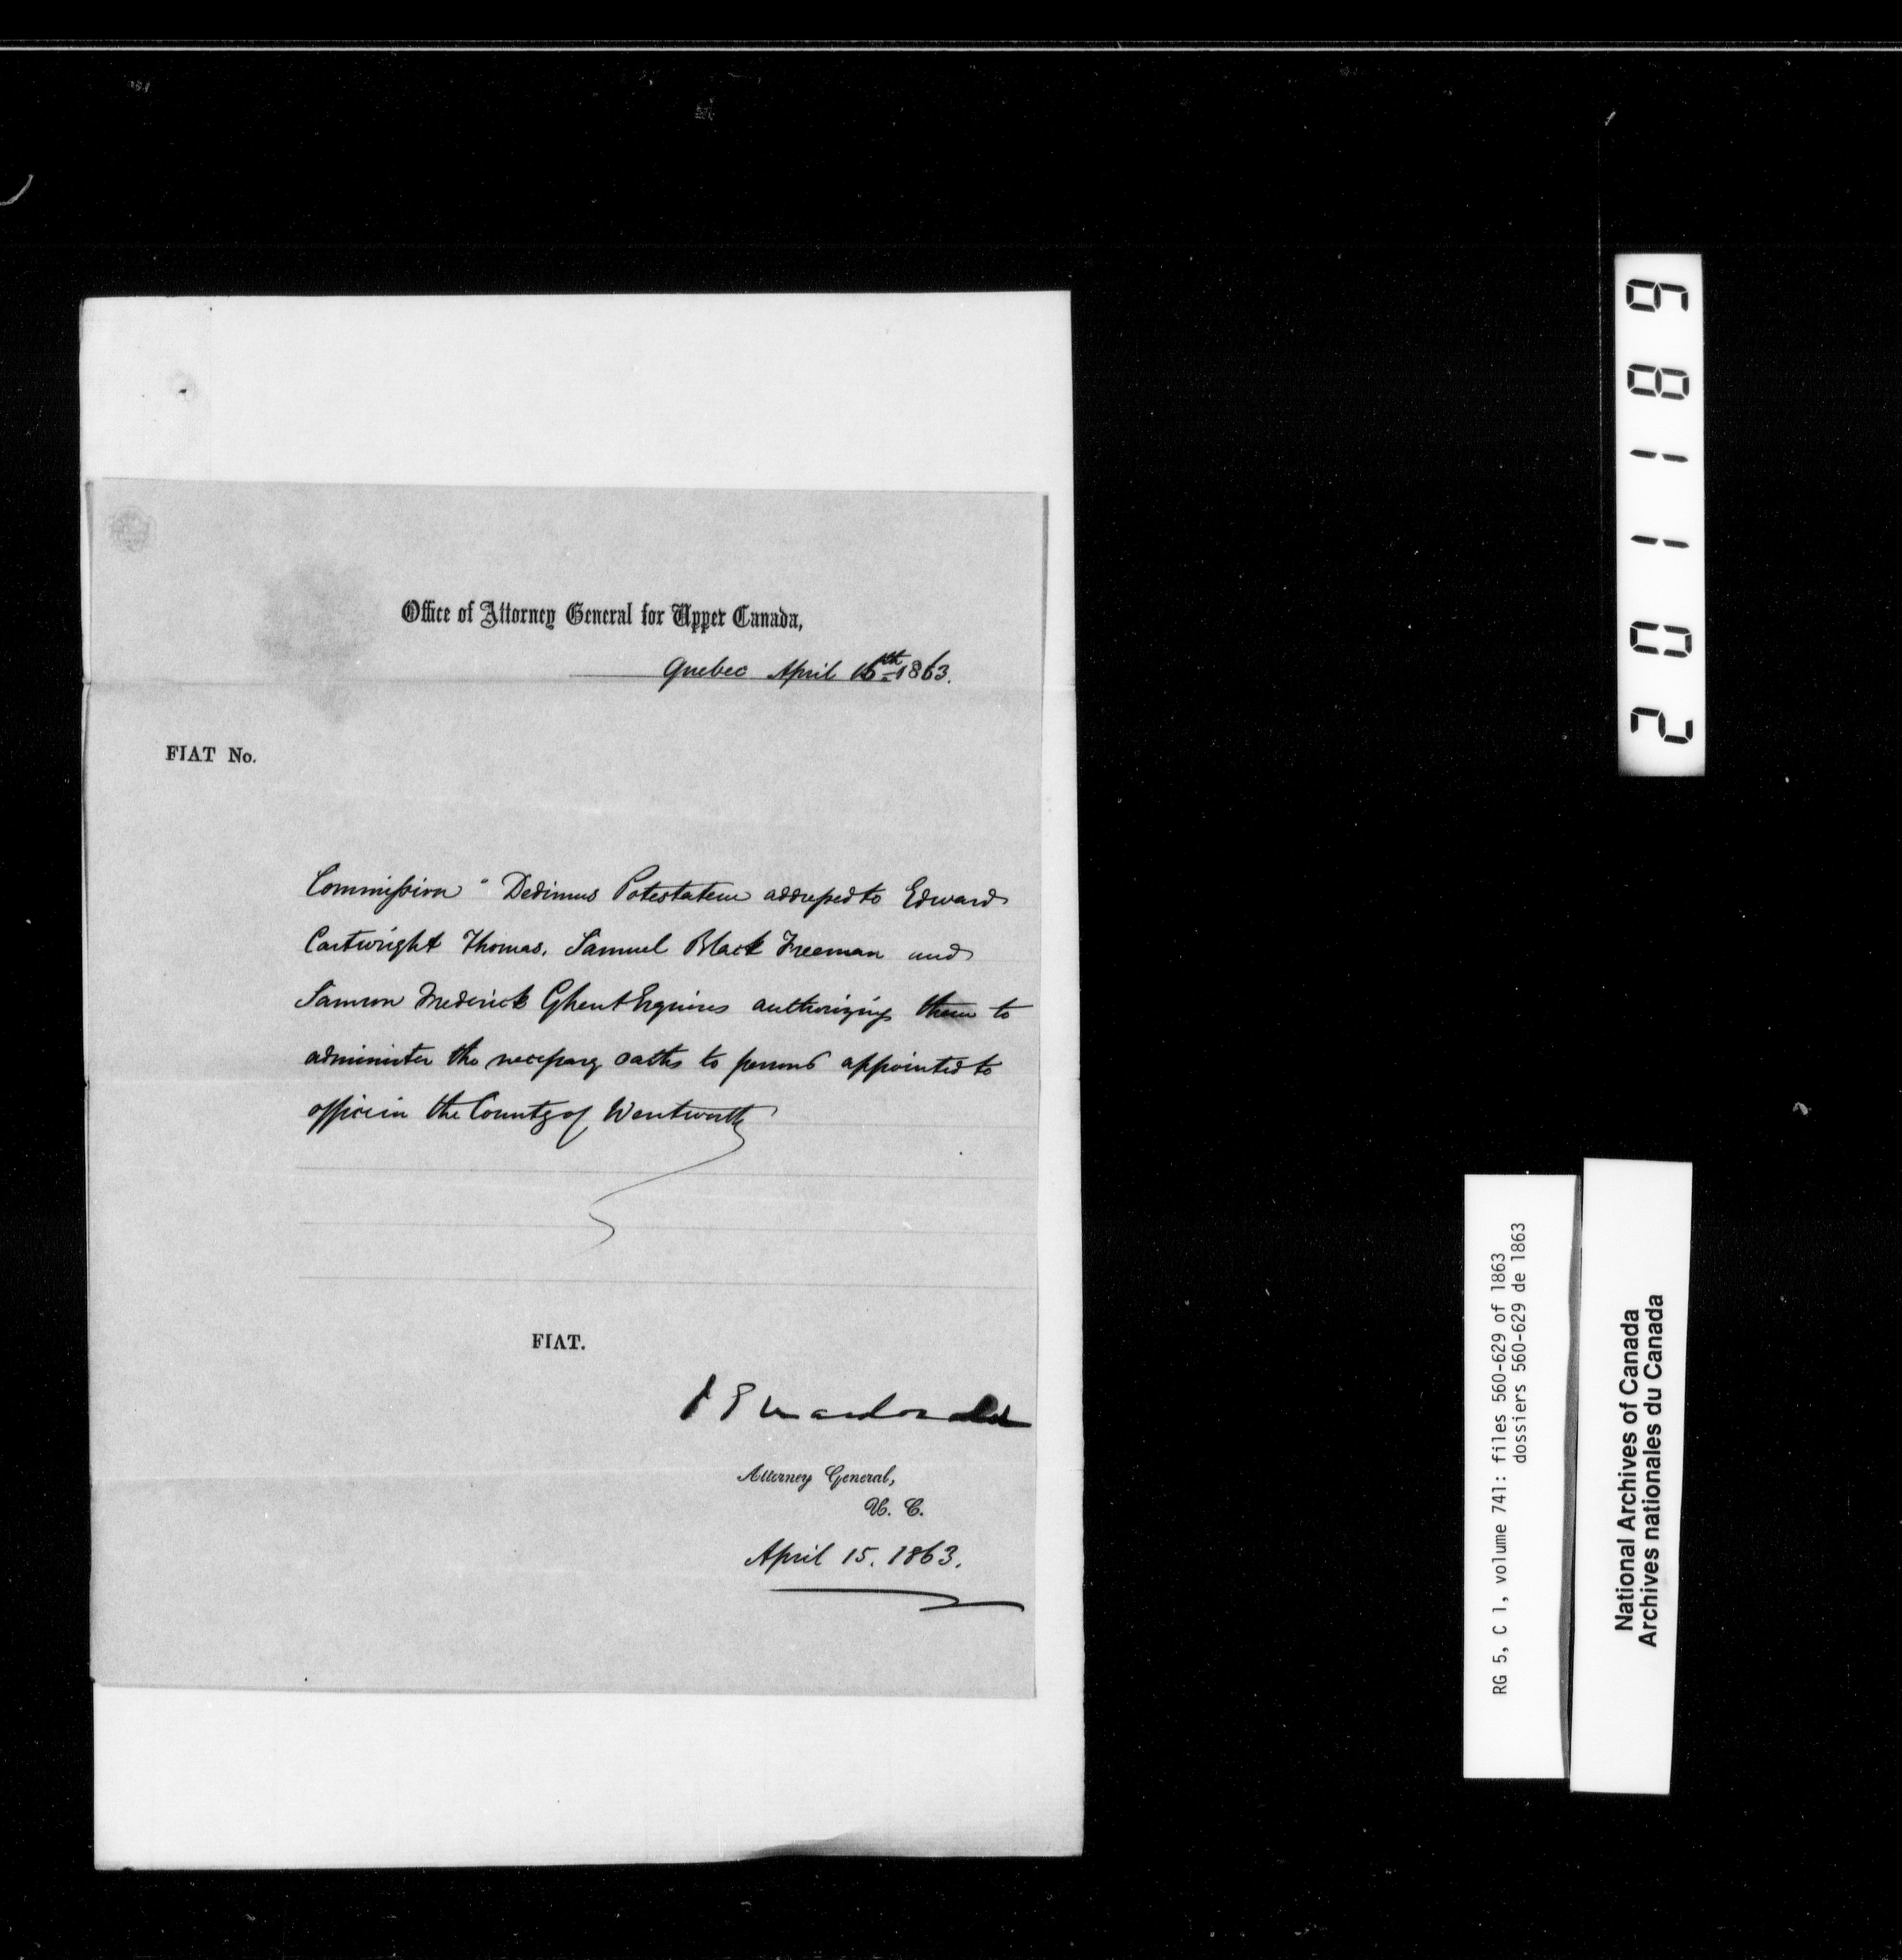 Office of Attorney General for Upper Canada,
Quebec April 16th 1863.
FIAT No.
Commission " Dedimus Potestatem addressed to Edward
Cartwright Thomas, Samuel Black Freeman and
Samson Frederick Ghent Esquires authorizing them to
administer the necessary oaths to persons appointed to
office in the County of Wentworth
FIAT.
J S Macdonald
Attorney General,
U. C.
April 15. 1863.
201186
RG 5, C 1, volume 741: files 560-629 of 1863
dossiers 560-629 de 1863
National Archives of Canada
Archives nationales du Canada